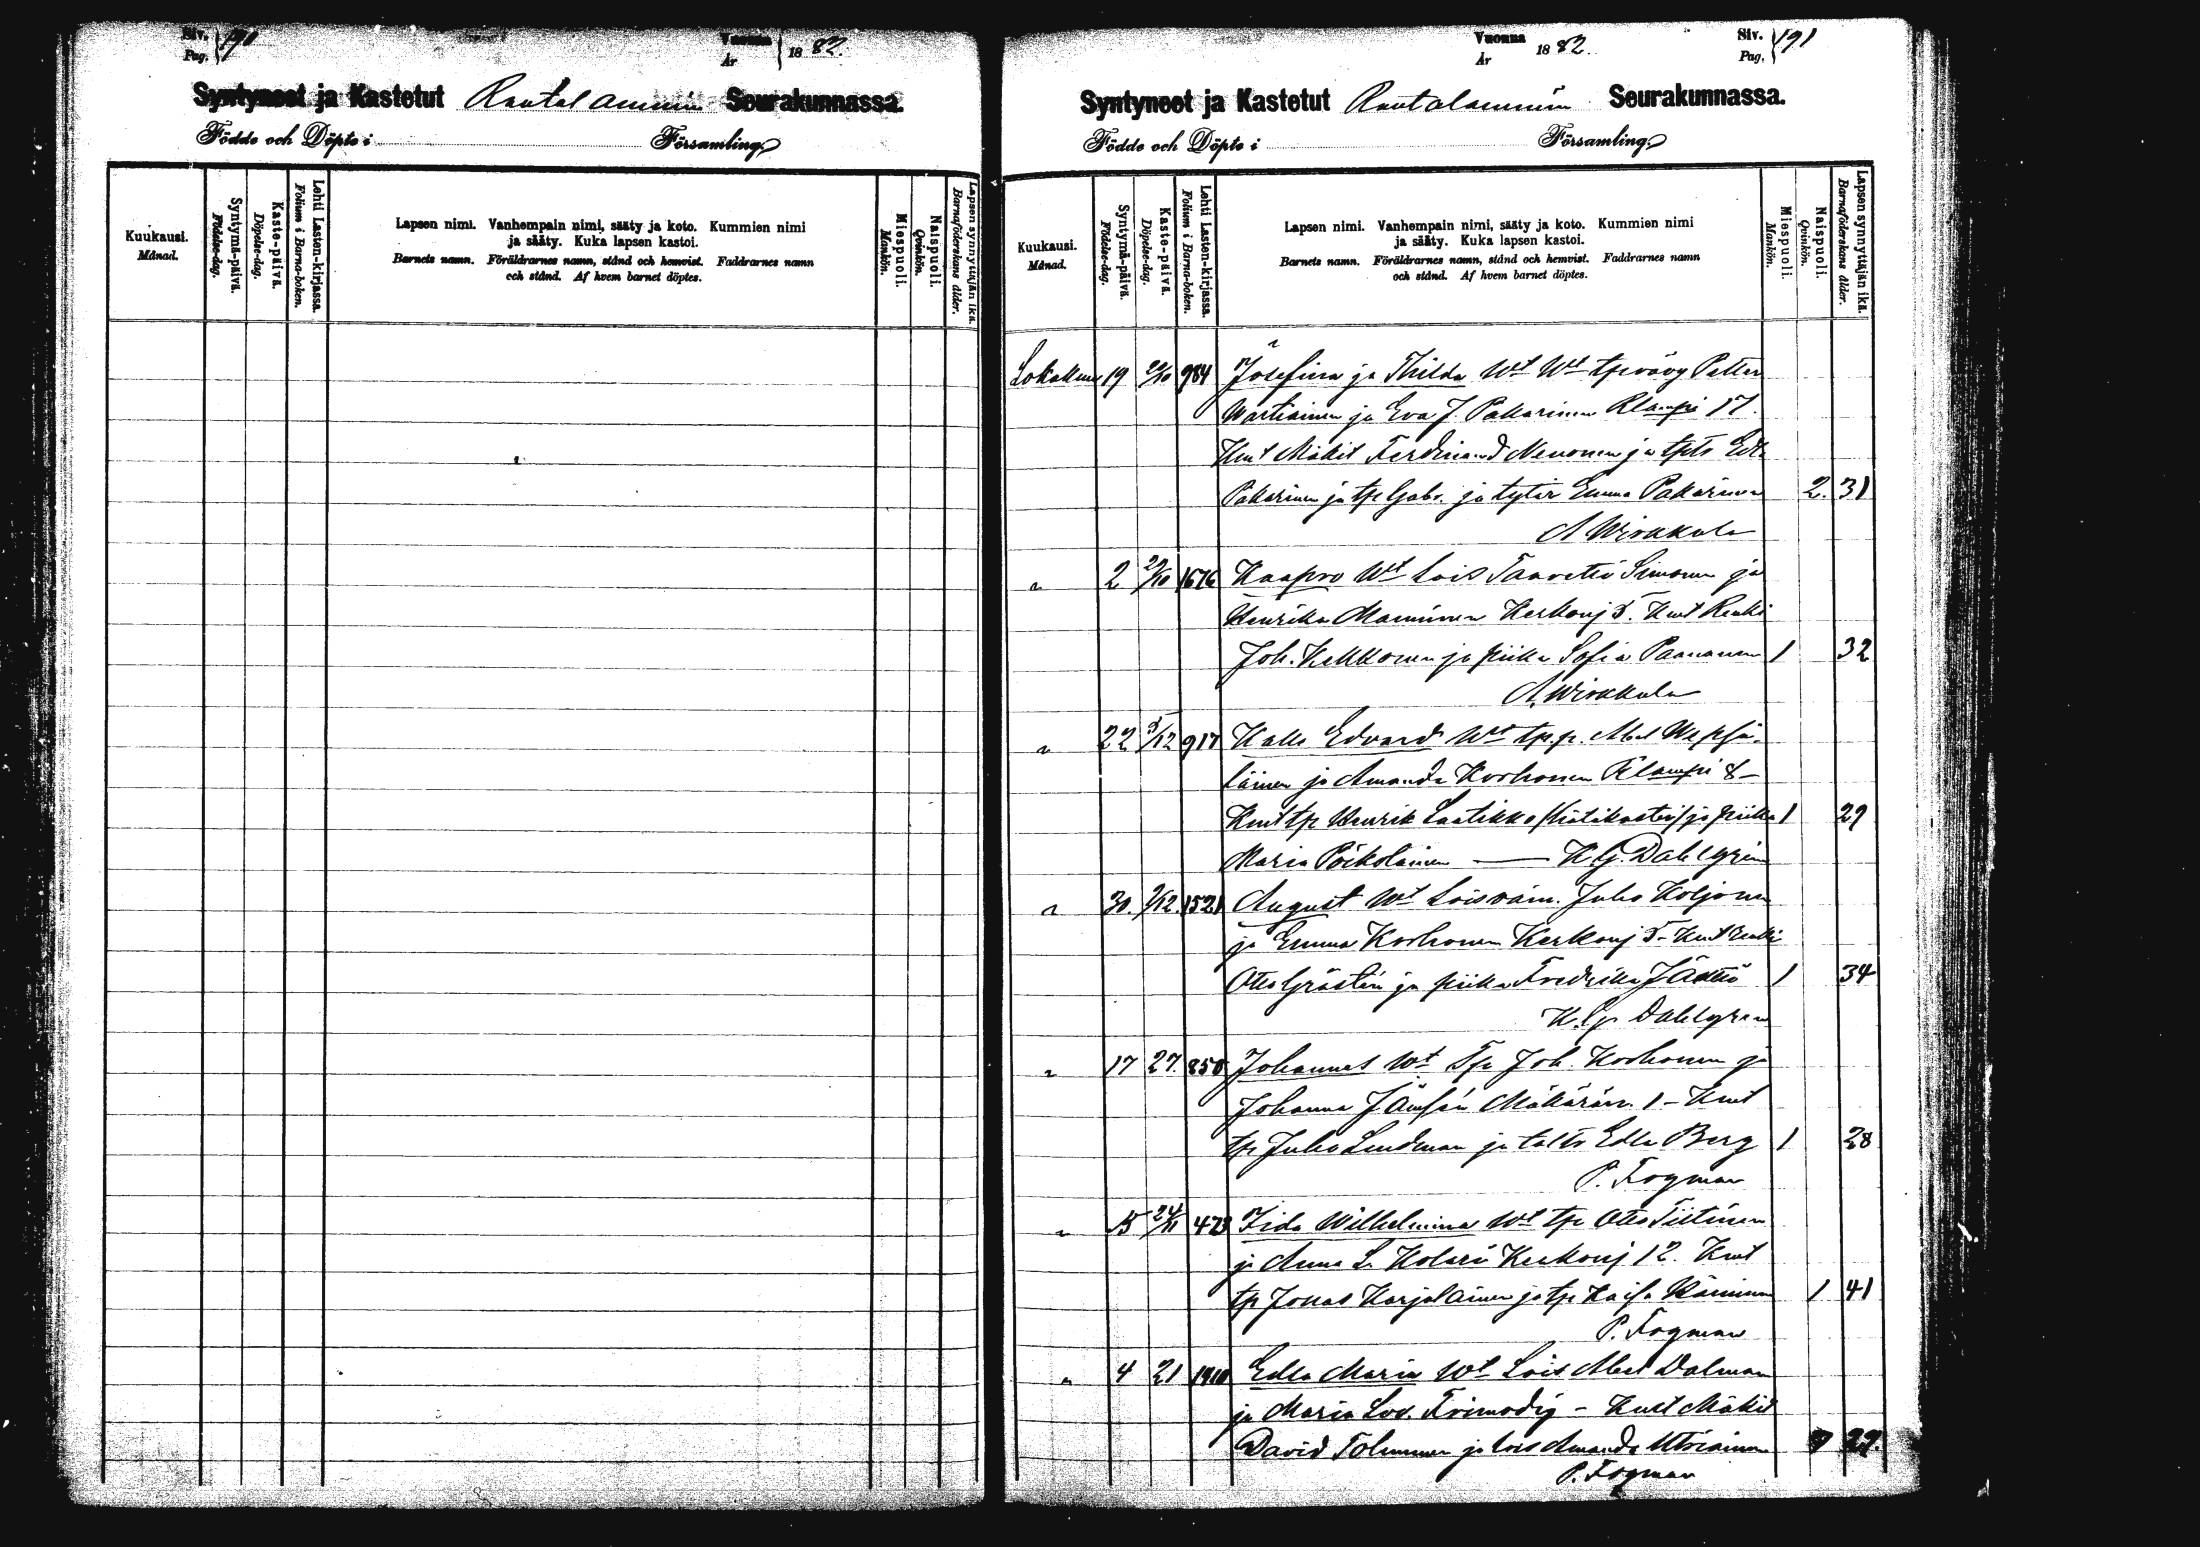 Siv. Pag. 190
Vuonna År 1882.
Syntyneet ja Kastetut Rautalammin Seurakunnassa.
Födde och Döpte i Församling
Kuukausi. Månad.
Syntymä-päivä. Födelse-dag.
Kaste-päivä. Döpelse-dag.
Lehti Lasten-kirjassa. Folium i Barna-boken.
Lapsen nimi. Vanhempain nimi, sääty ja koto. Kummien nimi
ja sääty. Kuka lapsen kastoi.
Barnets namn. Föräldrarnes namn, stånd och hemvist. Faddrarnes namn
och stånd. Af hvem barnet döptes.
Miespuoli. Mankön.
Naispuoli. Qvinkön.
Lapsen synnyttäjän ikä. Barnaföderskans ålder.
Vuonna År 1882.
Siv. Pag. 191
Syntyneet ja Kastetut Rautalammin Seurakunnassa.
Födde och Döpte i Församling
Kuukausi. Månad.
Syntymä-päivä. Födelse-dag.
Kaste-päivä. Döpelse-dag.
Lehti Lasten-kirjassa. Folium i Barna-boken.
Lapsen nimi. Vanhempain nimi, sääty ja koto. Kummien nimi
ja sääty. Kuka lapsen kastoi.
Barnets namn. Föräldrarnes namn, stånd och hemvist. Faddrarnes namn
och stånd. Af hvem barnet döptes.
Miespuoli. Mankön.
Naispuoli. Qvinkön.
Lapsen synnyttäjän ikä. Barnaföderskans ålder.
Lokakuu 19 984 Josefina ja Thilda Wt Wt tp vävy Petter
Wartiainen ja Eva J. Pakarinen Rlampi 17.
Kmt Mäkit Ferdinand Nenonen ja tpts Edla
Pakarinen ja tp Gabr. ja tytär Emma Pakarinen 2. 31
A Wirkkala
" 2 29/10 1676 Kaapro Wt Lois Taavetti Simonen ja
Henrika Manninen Kerkonj 5. Kmt Renki
Joh. Kekkonen ja piika Sofia Paananen 1 32
A. Wirkkala
" 22 3/12 917 Kalle Edvard Wt tp.p. Abel Wepsä-
läinen ja Amanda Korhonen Rlampi 8 -
Kmt tp Henrik Laatikko (hätäkastei) ja piika 1 29
Maria Pöikolainen — K.G. Dahlgren
" 30. 1521 August Wt Loisväin. Juho Koljonen
ja Emma Korhonen Kerkonj 5 - Kmt renki
Otto Gråsten ja piika Fredrika Jäntti 1 34
K.G. Dahlgren
" 17 27. 850 Johannes Wt Tp Joh. Korhonen ja
Johanna Jämsén Mäkäräin. 1 - Kmt
tp Juho Lindman ja talts Edla Berg 1 28
P. Fogman
" 15 24/11 473 Iida Wilhelmina Wt tp Otto Tiitinen
ja Anna L. Kolari Kerkonj 12. Kmt
tp Jonas Karjalainen ja tp Kaisa 1 41
P. Fogman
" 4 21 1910 Edla Maria Wt Lois Abel Dalman
ja Maria Lov. Frimodig - Kmt Mäkit
David Tolmunen ja lois Amanda Utriainen
P. Fogman